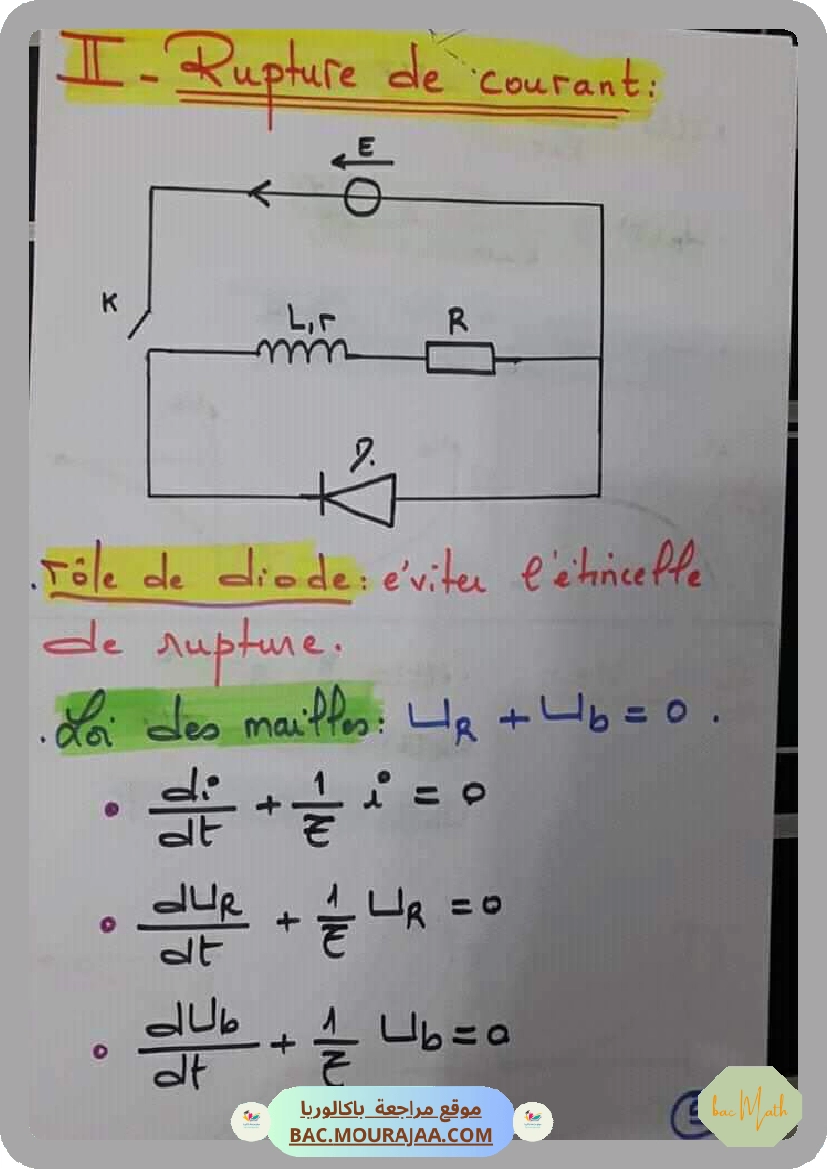 II - Rupture de courant:
E
K
L,r
R
D.
. rôle de diode: éviter l'étincelle
de rupture.
. Loi des mailles: UR + Ub = 0 .
• di/dt + 1/τ i = 0
• dUR/dt + 1/τ UR = 0
• dUb/dt + 1/τ Ub = 0
موقع مراجعة باكالوريا
BAC.MOURAJAA.COM
bac Math